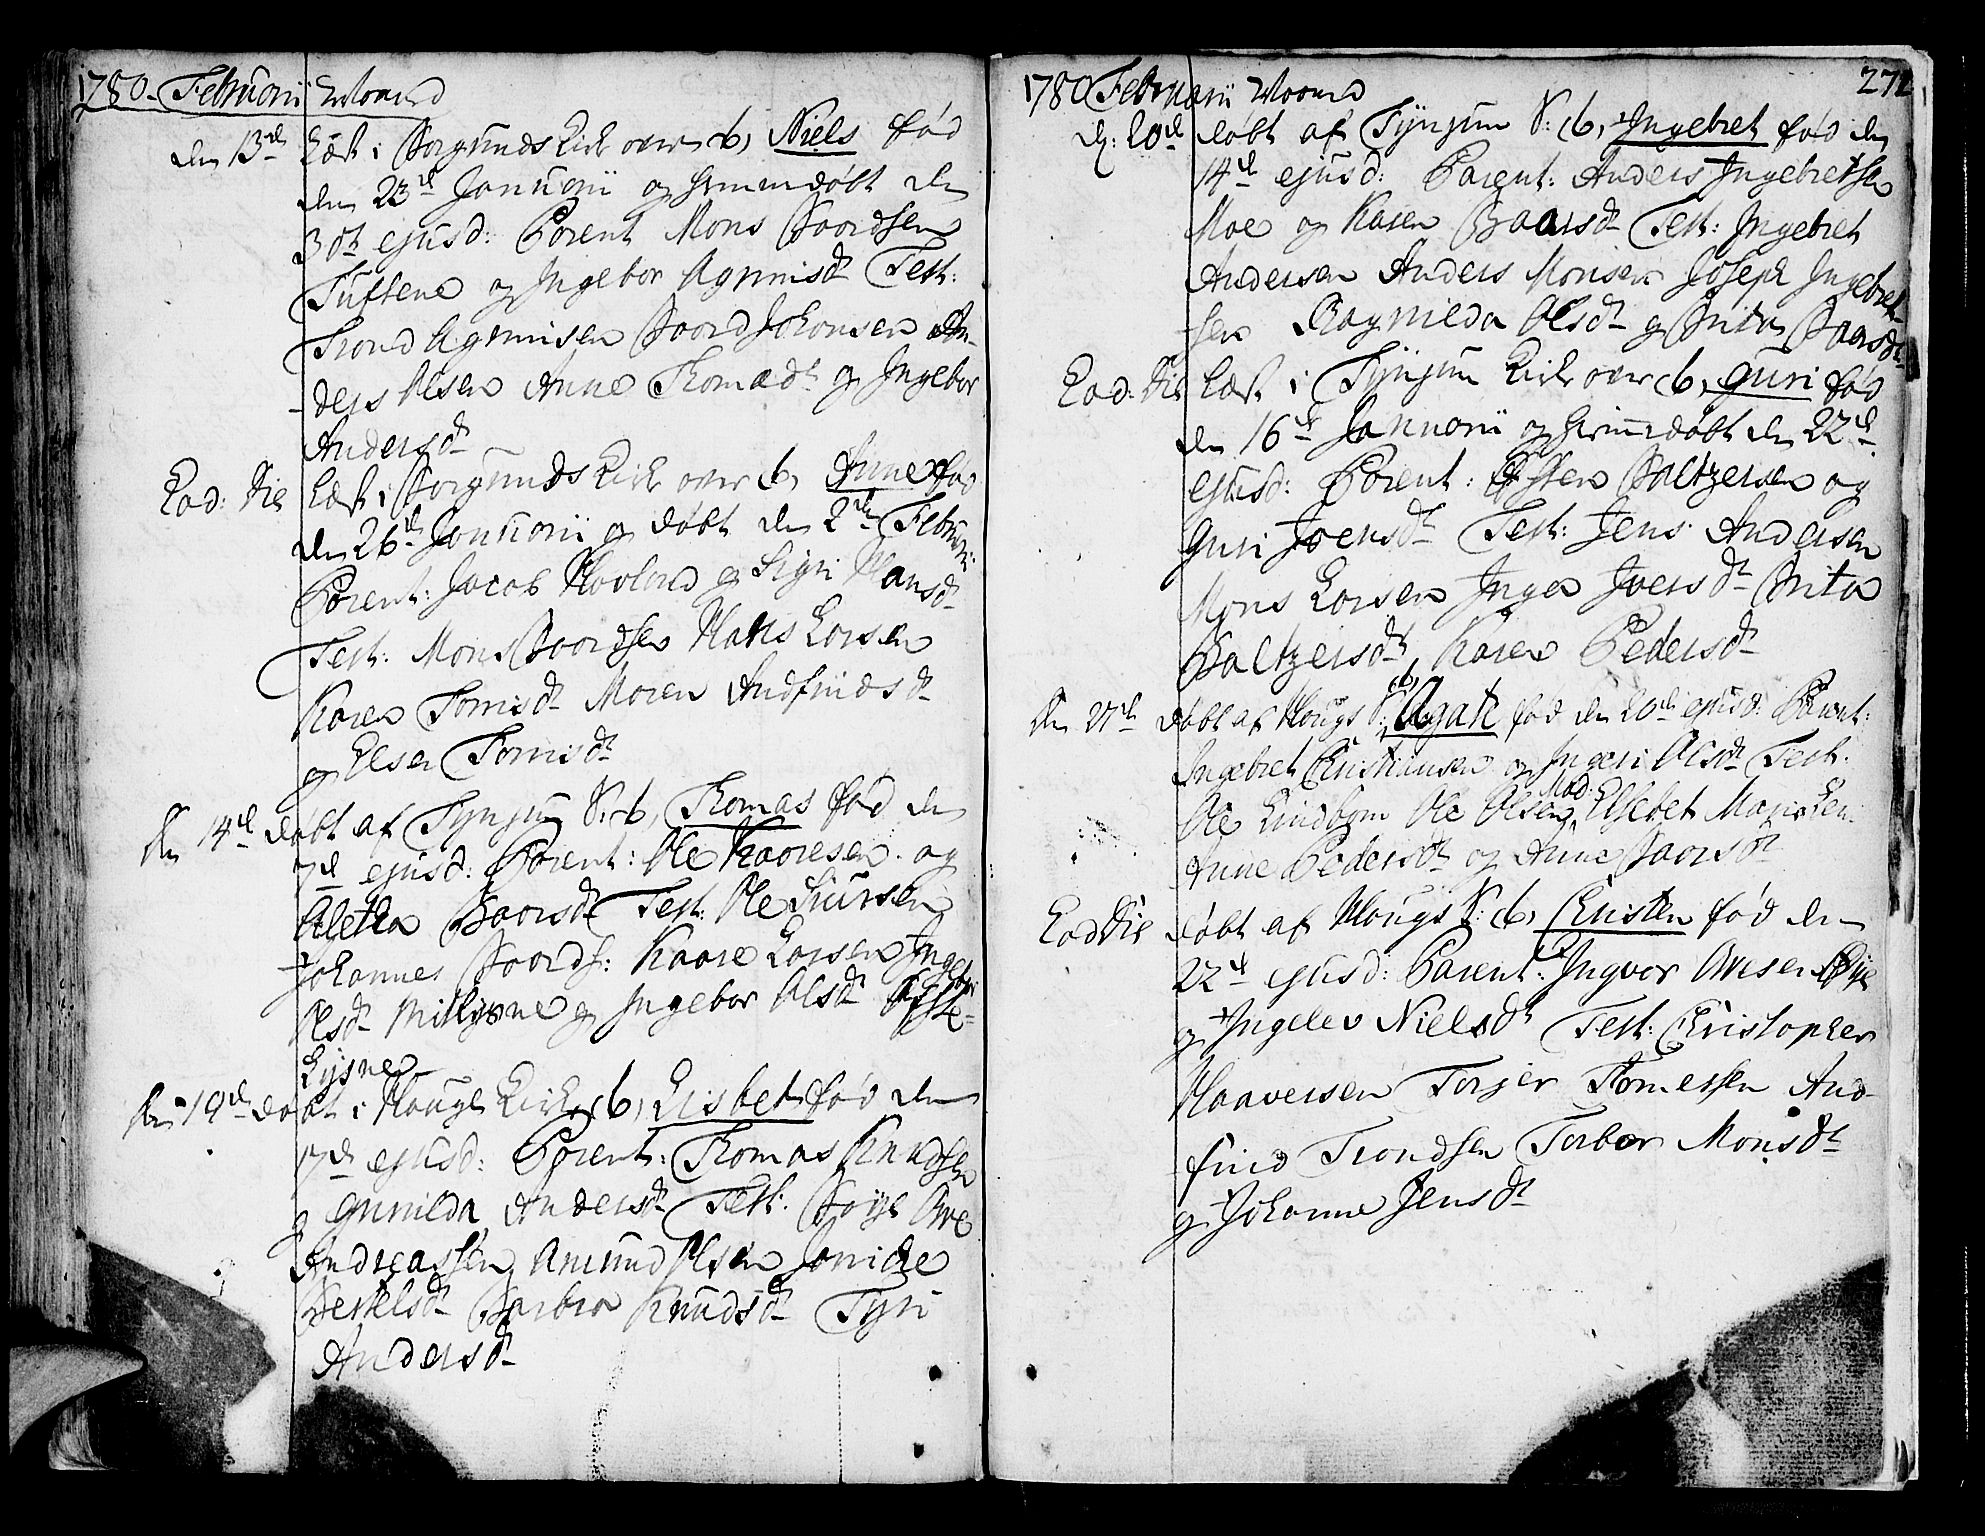 1780. Februarii Maaned
den 13de Læst i Borgunds Kirke over b, Niels fød
den 23de Januarii og hiemmedøbt den
30te ejusd: Parent Mons Baardsen
Tuftene og Ingebor Agmunsd. Test:
Trond Agmunsen Baard Johansen An-
ders Olsen Anne Thomæd. og Ingebor
Andersd.
Eod: Die Læst i Borgunds Kirke over b, Anne fød
den 26de Januarii og døbt den 2den Februarii
Parent: Jacob Hovland og Sigri Hansd.
Test: Mons Baardsen Hans Larsen
Karen Tomisd. Maren Andfindsd.
og Elsea Tomisd.
den 14de døbt af Tynjum S: b, Thomas fød den
7de ejusd: Parent: Ole Kaaresen og
Aletha Baarsd. Test: Ole Siursen
Johannes Baards: Kaare Larsen Ingebor
Olsd. og Ingebor Olsd.
Lysne
den 19de døbt i Houge Kirke b, Lisbet fød den
17de ejusd: Parent: Thomas Knudsen
og Gunilda Andersd. Test: Børge Ove
Andreassen Amund Olsen Janiche
Bertelsd. Barbra Knudsd. Tyri
Andersd.
1780 Februarii Maaned 272
d: 20de døbt af Tynjum S: b, Ingebret fød den
14de ejusd: Parent: Anders Ingebretsen
Moe og Karen Baarsd. Test: Ingebret
Andersen Anders Monsen Joseph Ingebret-
sen Ragnilda Olsd. og Brita Baarsd.
Eod: Die Læst i Tynjum Kirke over b, Guri fød
den 16de Januarii og hiemmedøbt den 22de
ejusd: Parent: Østen Baltzersen og
Guri Joensd. Test: Jens Andersen
Mons Larsen Inger Joersd. Brita
Baltzersd. Karen Pedersd.
den 27de døbt af Hougs S: b, Agate fød den 20de ejusd: Parent:
Ingebret Christiansen og Ingeri Olsd. Test:
Ole Lindbom Ole Olsen, Mad: Elsebet Maria Len:
Anne Pedersd. og Anne Baarsd.
Eod Die døbt af Hougs S: b, Christen fød den
22de ejusd: Parent: Ingvor Ovesen Øye
og Ingelev Nielsd. Test: Christopher
Haaversen Torger Tomessen And-
find Trondsen Torbor Monsd.
og Johanne Jensd.